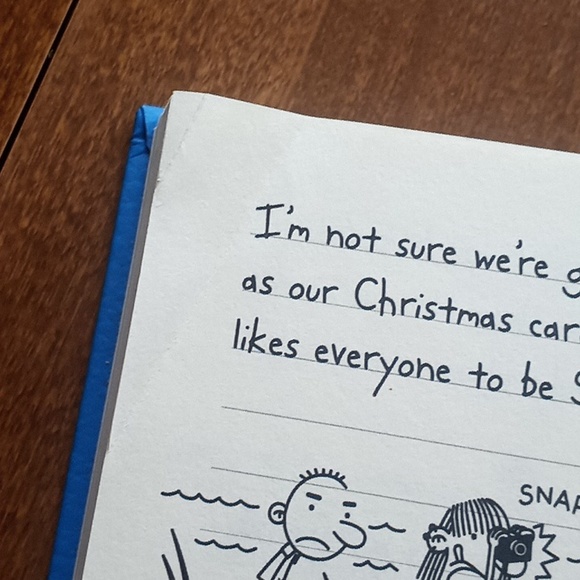 I'm not sure we're
as our Christmas
likes everyone to be